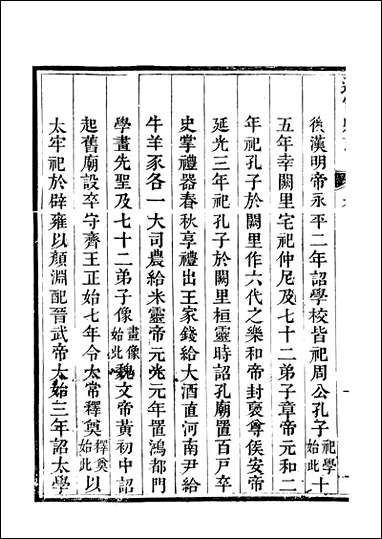 後漢明帝永平二年詔學校皆祀周公孔子祀學始此十
五年幸闕里宅祀仲尼及七十二弟子章帝元和二
年祀孔子於闕里作六代之樂和帝封褒尊侯安帝
延光三年祀孔子於闕里桓靈時詔孔廟置百戸卒
史掌禮器春秋享禮出王家錢給大酒直河南尹給
牛羊豕各一大司農給米靈帝元光元年置鴻都門
學畫先聖及七十二弟子像畫像始此魏文帝黃初中詔
起舊廟設卒守齊王正始七年令太常釋奠釋奠始此以
太牢祀於辟雍以顏淵配晉武帝大始三年詔太學